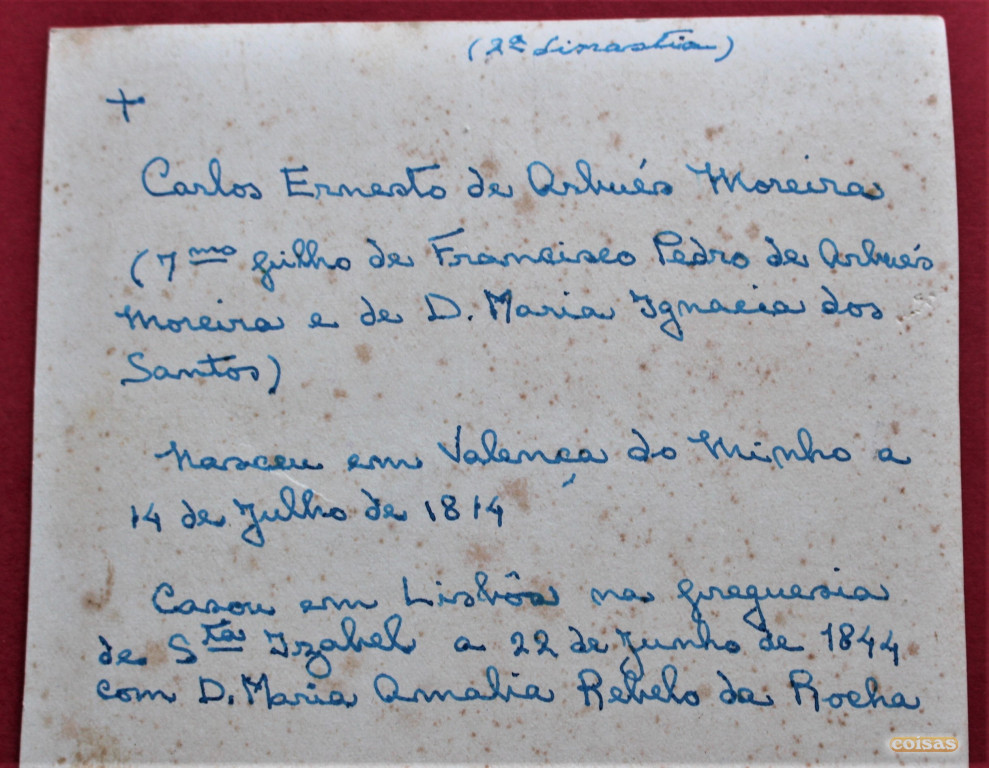 (2ª Dinastia)
+
Carlos Ernesto de Arbués Moreira
(7mo filho de Francisco Pedro de Arbués
Moreira e de D. Maria Ignacia dos
Santos)
Nasceu em Valença do Minho a
14 de Julho de 1814
Casou em Lisbôa na freguesia
de Sta Izabel a 22 de Junho de 1844
com D. Maria Amalia Rebelo da Rocha
coisas